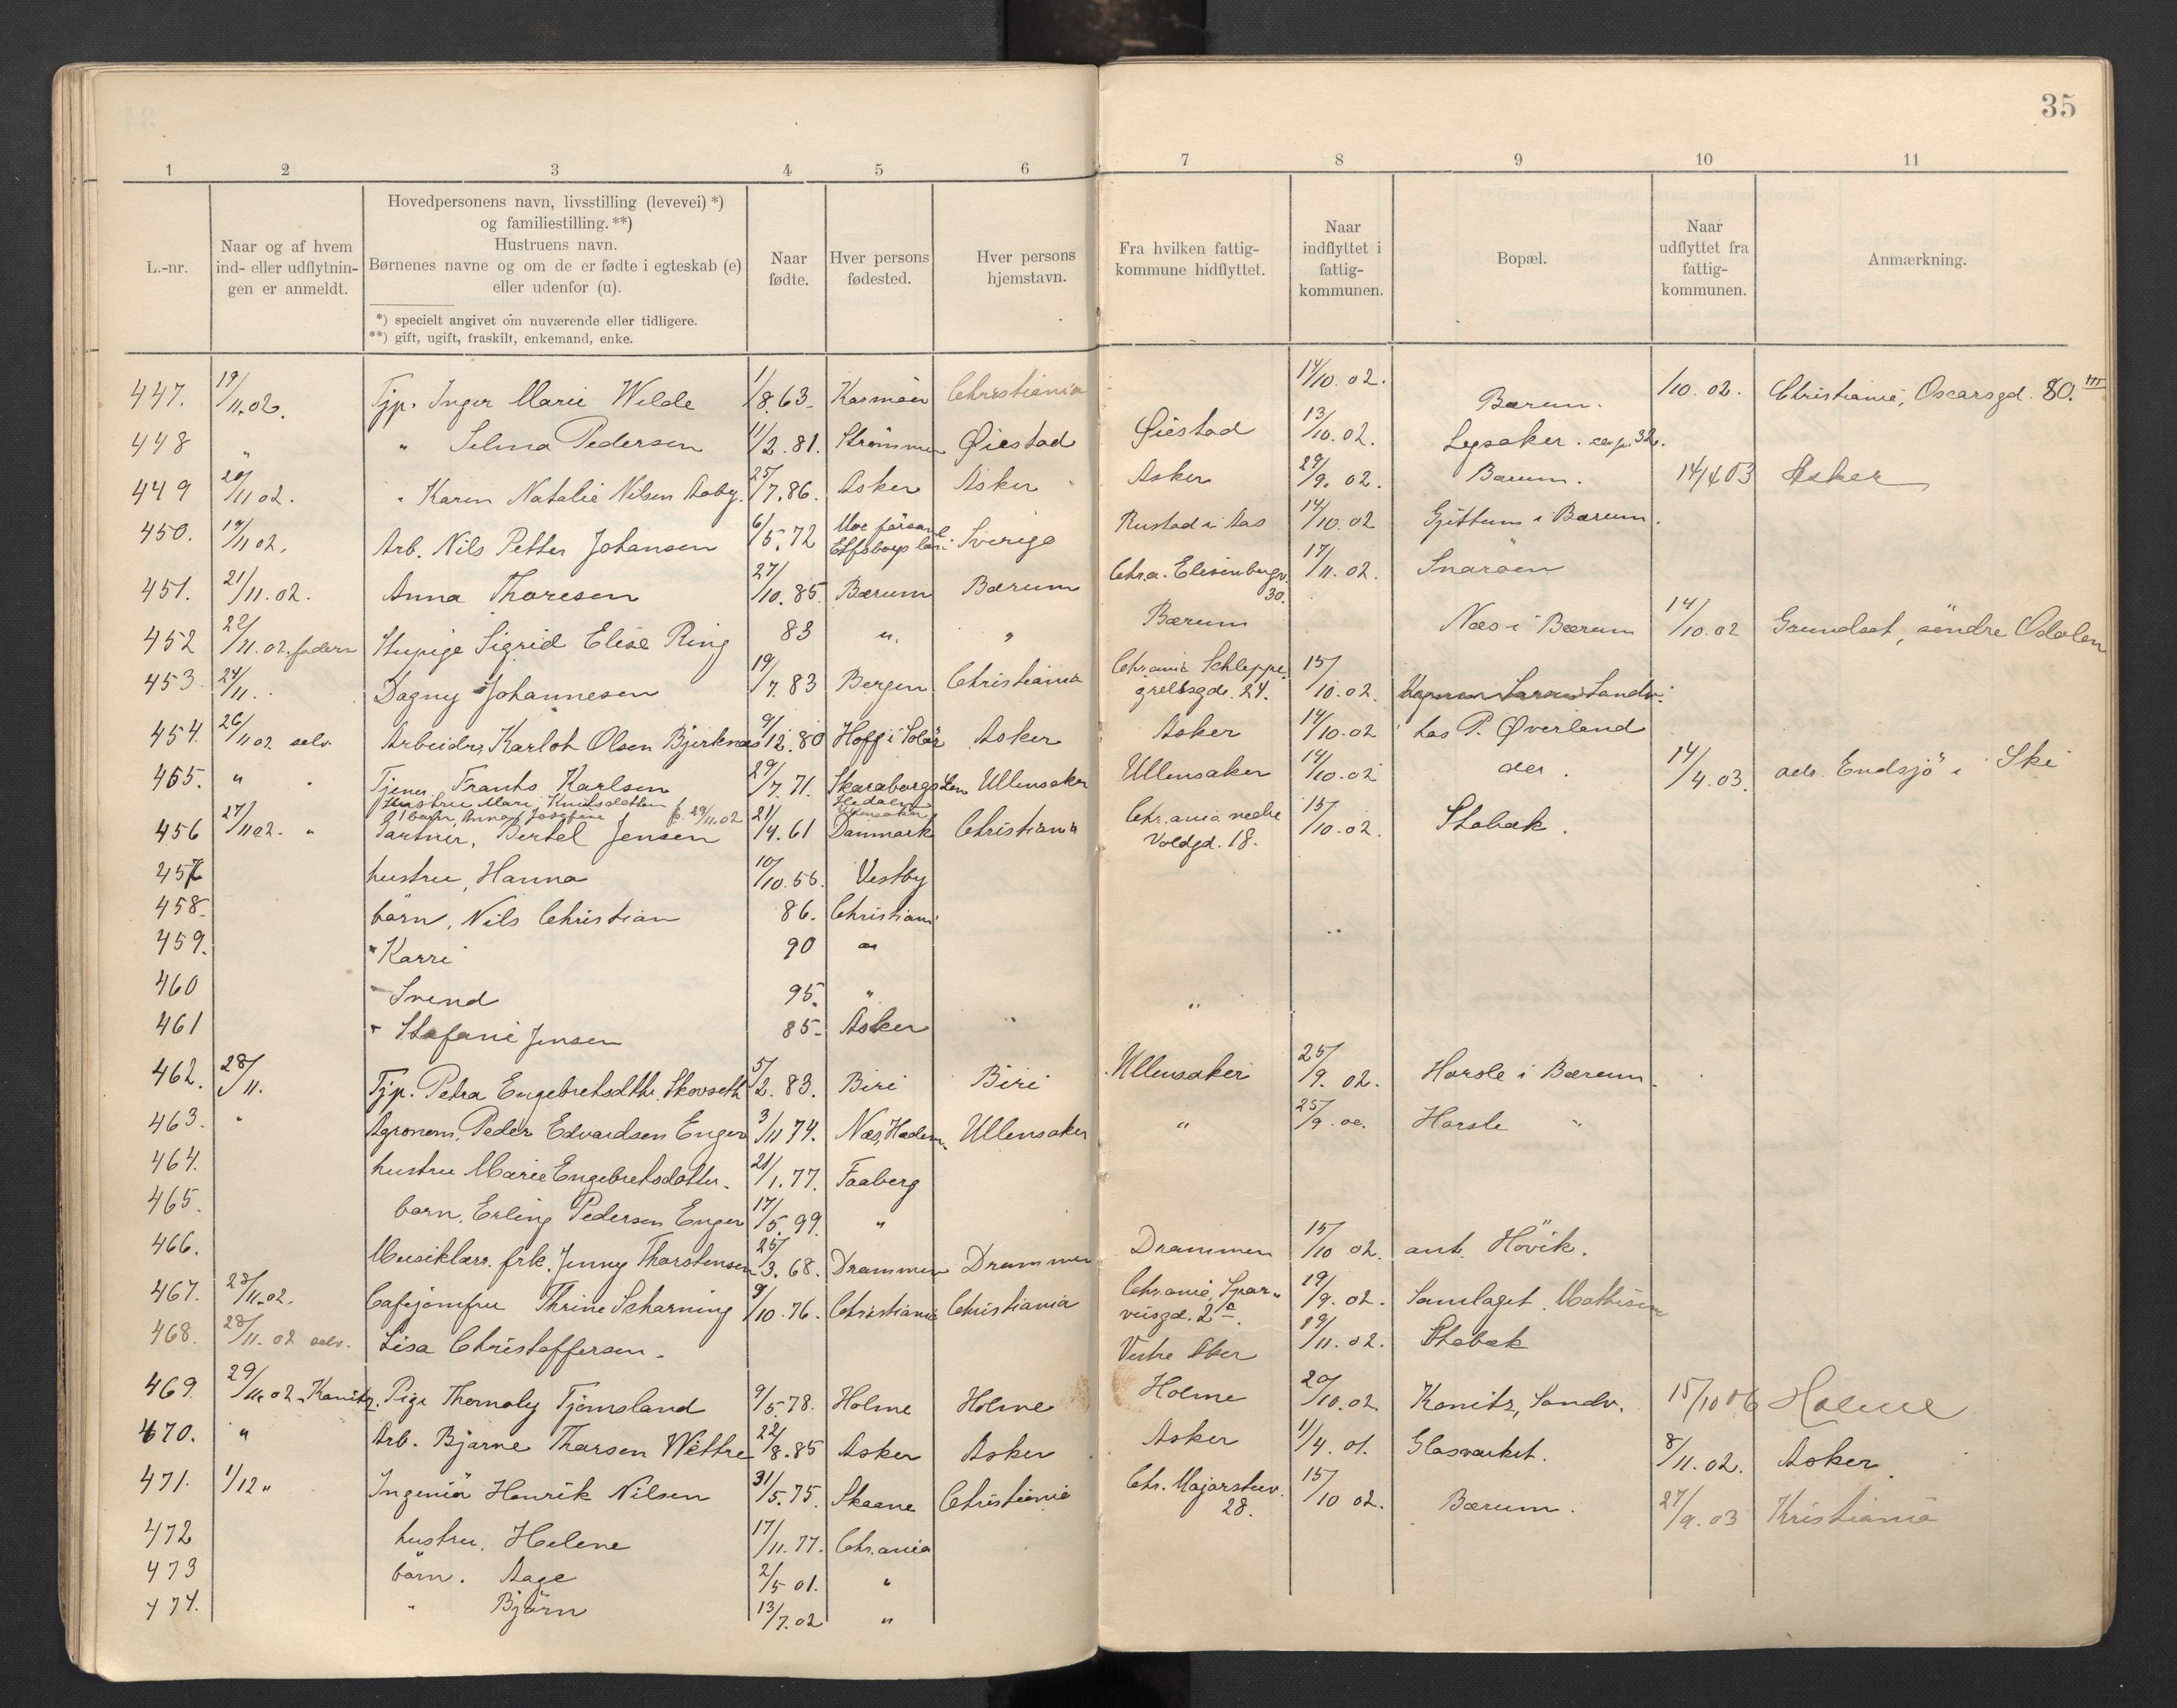 35
1 2 3 4 5 6 7 8 9 10 11
L.-nr.
Naar og af hvem
ind- eller udflytnin-
gen er anmeldt.
Hovedpersonens navn, livsstilling (levevei) *)
og familiestilling. **)
Hustruens navn.
Børnenes navne og om de er fødte i egteskab (e)
eller udenfor (u).
*) specielt angivet om nuværende eller tidligere.
**) gift, ugift, fraskilt, enkemand, enke.
Naar
fødte.
Hver persons
fødested.
Hver persons
hjemstavn.
Fra hvilken fattig-
kommune hidflyttet.
Naar
indflyttet i
fattig-
kommunen.
Bopæl.
Naar
udflyttet fra
fattig-
kommunen.
Anmærkning.
447. 19/11.02. Tjp. Inger Marie Welde 1/8.63. Christiania 14/10.02. Bærum. /10.02. Christiania, Oscarsgd. 80. III
448 " " Selma Pedersen 11/2.81. Strømmen Øiestad Øiestad 13/10.02. Lysaker. 32.
449 20/11 02. " Karen Natalie Nilsen Aaby. 25/7.86. Asker Asker Asker 29/9.02. Bærum. 14/4 03 Asker
450. 19/11 02. Arb. Nils Petter Johansen 6/5.72 Elfsborgs län Sverige Rustad i Aas 14/10.02 Gjettum i Bærum.
451. 21/11.02. Anna Thoresen 27/10.85. Bærum Bærum Chr.a. Elisenbergv. 30. 17/11.02. Snarøen
452 22/11.02. faderen Stupige Sigrid Elise Ring 83 " " Bærum Næs i Bærum 14/10.02 Grundset, søndre Odalen
453. 24/11. Dagny Johannesen 19/7.83 Bergen Christiania Chr.ania Schleppe
grellsgde. 24. 15/10.02. Sandv.
454. 26/11 02 selv. Arbeider, Karlot Olsen Bjerknæs 9/12.80 Hoff i Solør Asker Asker 14/10.02 hos P. Øverland
455. " " Tjener Frants Karlsen 29/7.71. Skaraborgs län Ullensaker Ullensaker 14/10.02 der. 14/4.03. Endsjø i Ski
Hustru Mari Knutsdatter Hedalen
1 barn, Anna Josefine f. 29/11.02 Ullensaker
456 27/11 02. " Gartner, Bertel Jensen 21/4.61 Danmark Christiania Chr.ania nedre
Voldgd. 18. 15/10.02. Stabæk.
457 hustru, Hanna 10/10.56. Vestby
458. børn, Nils Christian 86. Christiania
459. " Karri 90 "
460 " Svend 95. " "
461 " Stefani Jensen 85. Asker "
462. 28/11. Tjp. Petra Engebretsdtr. Skovseth 5/2.83. Biri Biri Ullensaker 25/9.02. Harsle i Bærum.
463. " Agronom, Peder Edvardsen Enger 3/11 74. Næs, Hedem. Ullensaker " 25/9.02. Harsle "
464. hustru Marie Engebretsdatter. 21/1.77. Faaberg
465. barn, Erling Pedersen Enger 17/5.99. "
466. Musiklærr. frk. Jenny Thorstensen 25/3.68. Drammen Drammen Drammen 15/10 02. ant. Høvik.
467. 28/11.02. Cafejomfru Thrine Scharning 9/10.76. Christiania Christiania Chr.ania, Spor-
veisgd. 2a. 19/9.02. Samlaget. Mathisen
468. 28/11.02 selv. Lisa Christoffersen. Vestre Aker 19/11.02. Stabæk
469. 29/11.02. Kanitz. Pige Thomaly Tjomsland 9/5.78. Holme Holme Holme 20/10.02. Konitz, Sandv. 15/10 06 Holme
470. " Arb. Bjarne Thorsen Wettre 22/8.85 Asker Asker Asker 1/4.01. Glasværket. 8/11.02. Asker.
471. 1/12 " Ingeniør Henrik Nilsen 31/5.75. Skaane Christiania Chr. Majorstuv.
28. 15/10 02. Bærum. 27/9.03 Kristiania
472 hustru, Helene 17/11.77. Chr.ania
473 børn. Aage 2/5 01. "
474. " Bjørn 13/7.02 "